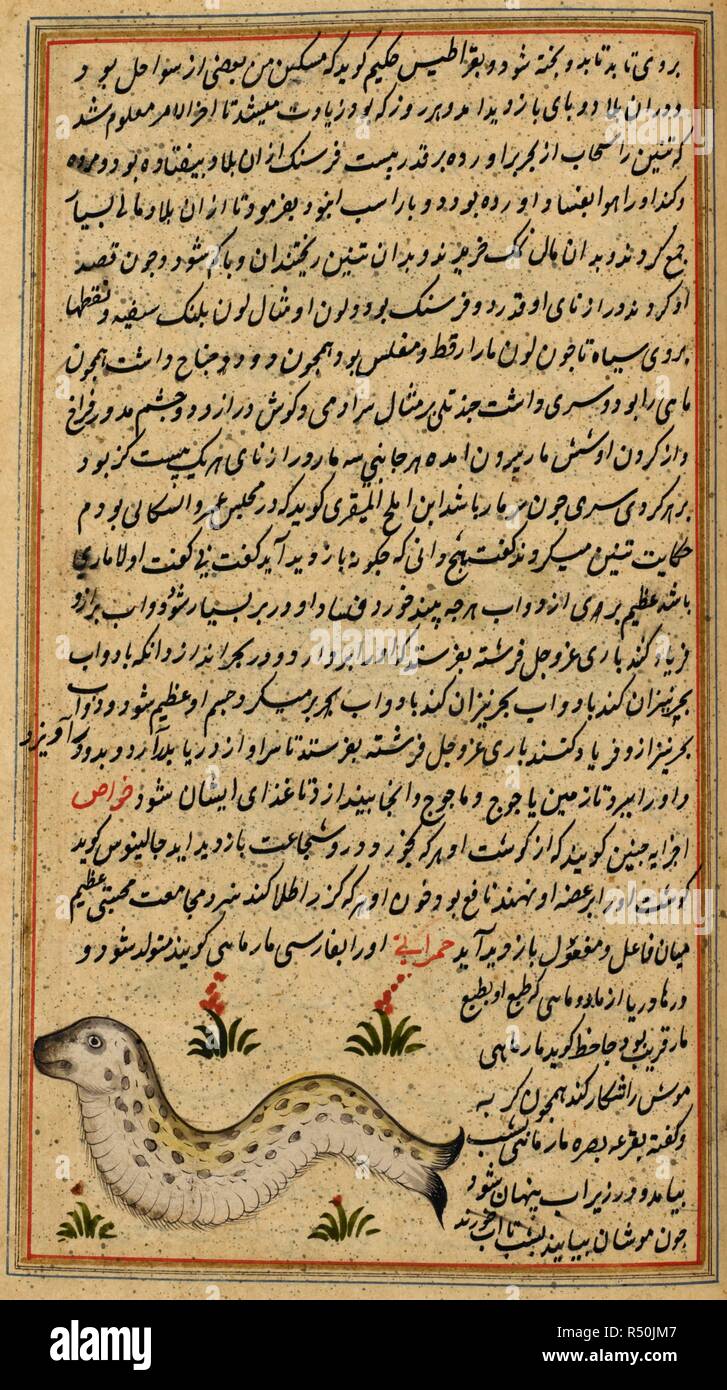 بروی تابد تا بد و پخته شود و بقراطیس حکیم کوید که مسکین من بعضی از سواحل بود
دران بلاد وبای بازدید امد و هر روز که بود زیادت میشد تا اخر الامر معلوم شد
که تنین را سحاب از بحر براورده بر قدر بیست فرسنک ازان بلاد بیفتاده بود و مرده
و کند او را هوا بفساد اورده بود و ... بفرمود تا ازان بلاد مالی بسیار
جمع کردند و بدان مال نمک خریدند و بدان تنین ریختند ان وبا کم شود و چون قصد
او کردند درازنای او قدر دو فرسنک بود و لون او مثال لون پلنک سفیه و نقطها
بروی سیاه تا چون لون مار ارقط و مفلس بود همچون ... دو جناح داشت همچون
ماهی را بود و سری داشت چند تلی بر مثال سر ادمی و کوش دراز و دو چشم مدور فراخ
و از کردن او شش مار بیرون امده هر جانبی سه مار درازنای هر یک بیست کز بود
بر هر کردی سری چون سر مار باشد ابن ... کوید که در مجلس عمرو البکالی بودم
حکایت تنین میکردند کفت هیچ دانی که چکونه بازدید آید کفت نی کفت اولا ماری
باشد عظیم بری از دواب هر چه بیند خورد فساد او در بر بسیار شود و دواب بر ازو
فریاد کند باری عزوجل فرشته بفرستد که او را بردارد و در بحر اندازد انکه با دواب
بحر نیز ان کند با دواب بحر نیز ان کند با دواب بحر بر میکرد جسم او عظیم شود و دواب
بحر نیز ازو فریاد کنند باری عزوجل فرشته بفرستد تا سر او از دریا بدر آرد و بدو در آویزد
و او را ببرد تا زمین یاجوج و ماجوج و انجا بیندازد تا غذای ایشان شود خواص
اجزایه چنین کویند که از کوشت او هر که بخورد درو شجاعت بازدید اید جالینوس کوید
کوشت او را بر عضه او نهند نافع بود و خون او هر که کزر اطلا کند ... مجامعت محبتی عظیم
میان فاعل و مفعول بازدید آید ... او را بفارسی مارماهی کویند متولد شود و
درها دریا از مار و ماهی که طبع او بطبع
مار قریب بود جاحظ کوید مارماهی
موش را شکار کند همچون کربه
و کفته بقرعه بصره مارماهی شب
بیامد و در زیر اب پنهان شود
چون موشان بیایند بشب تا اب خورند
alamy
alamy
Image ID: R50JM7
www.alamy.com